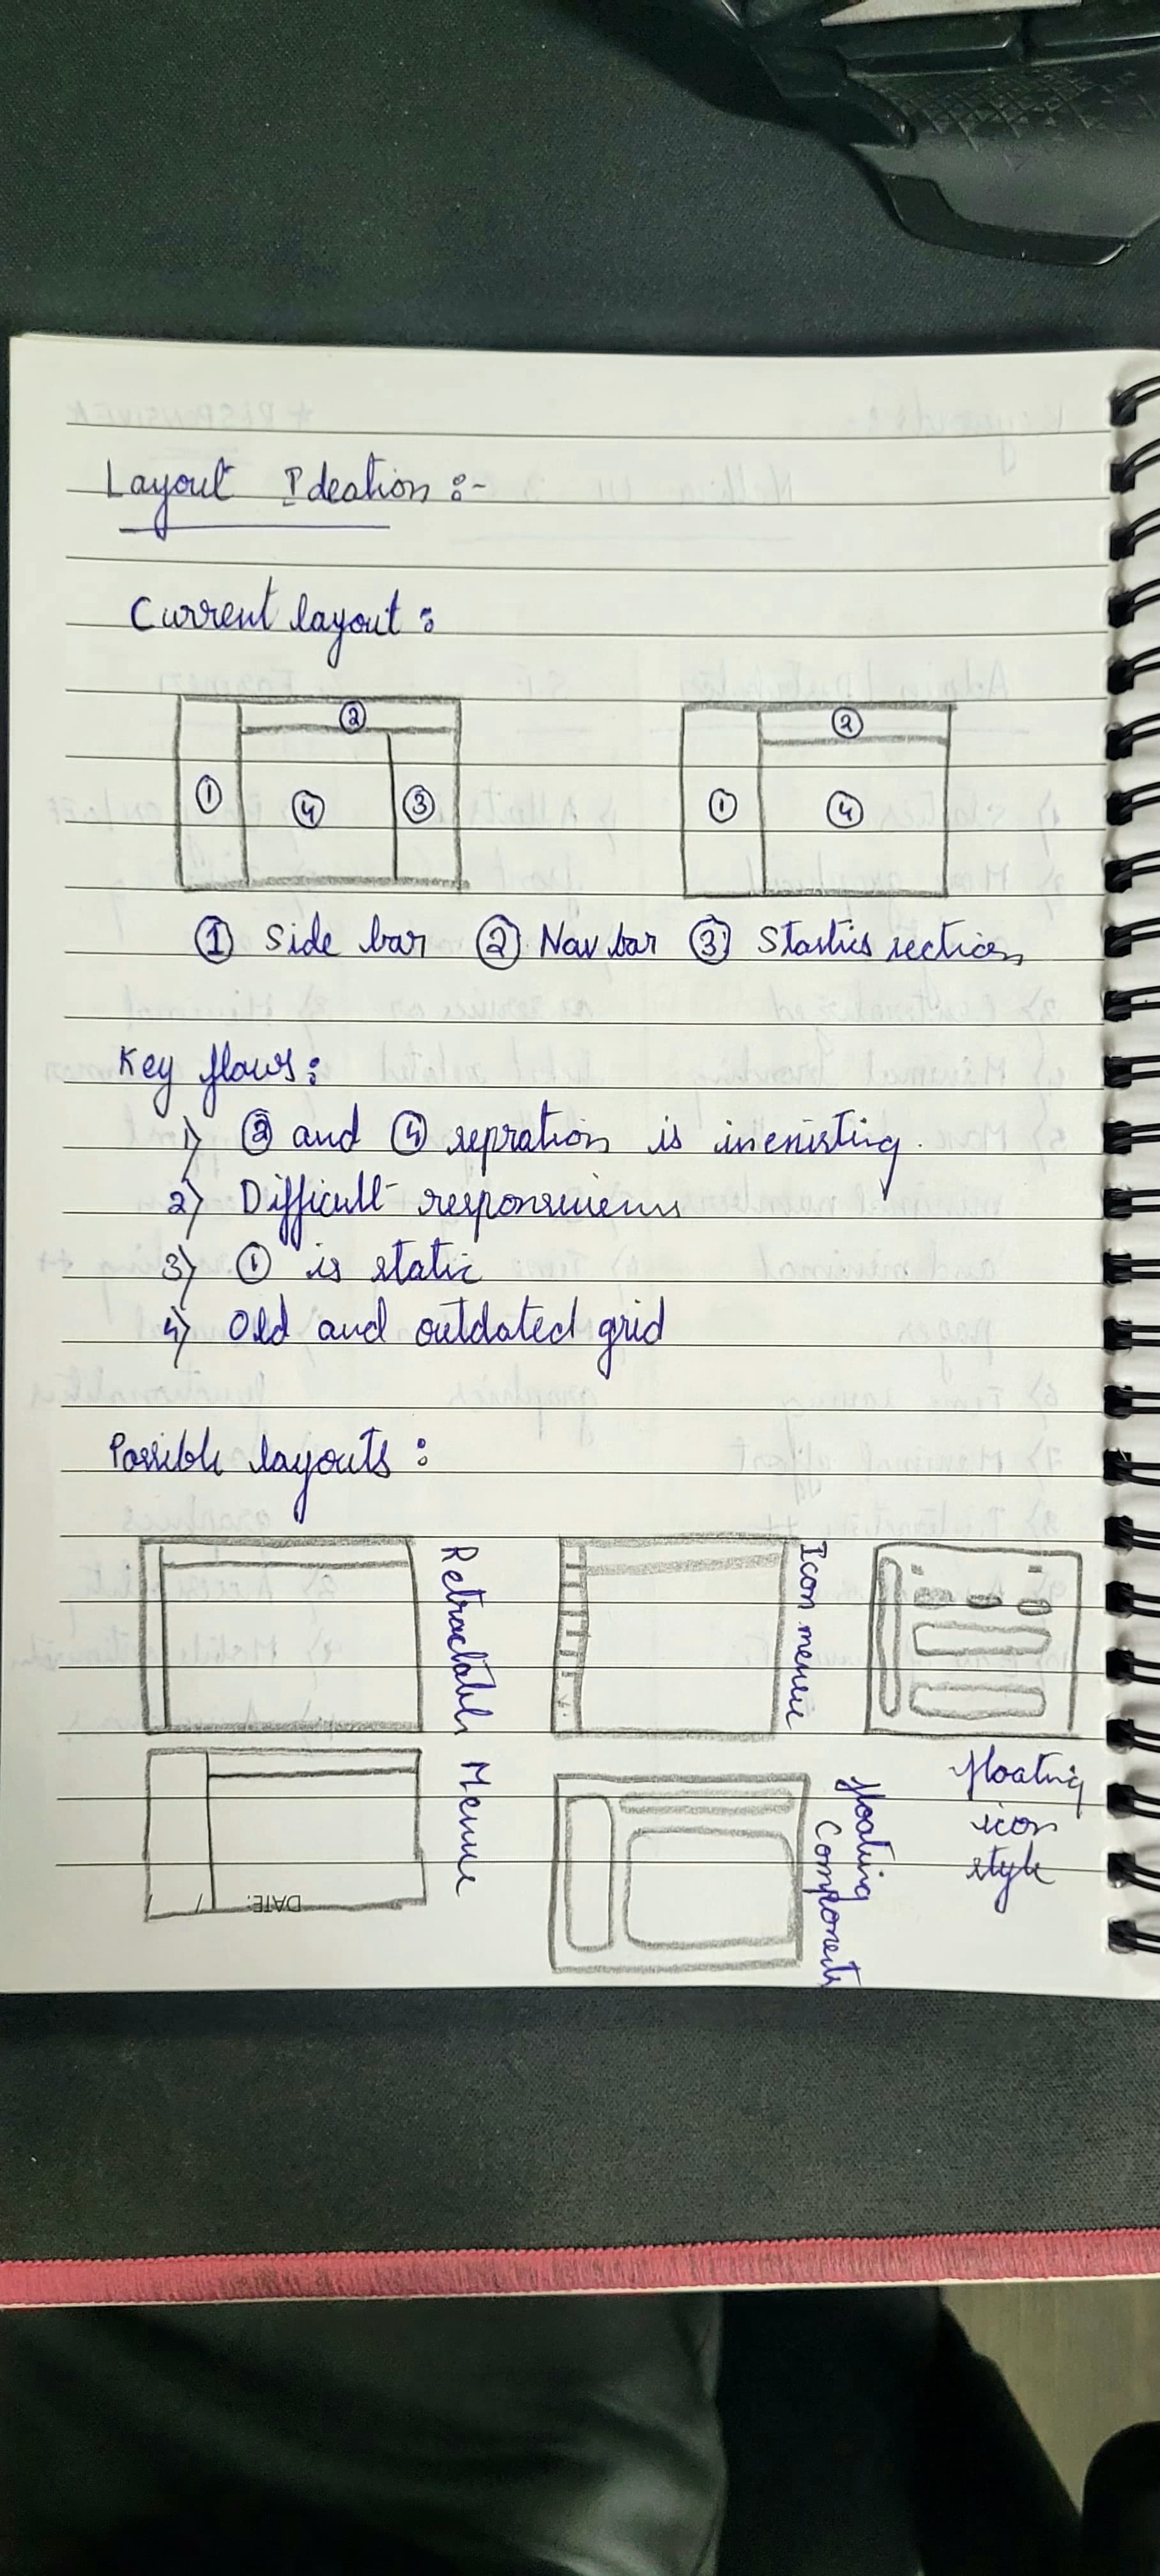 Layout Ideation :-
Current layout :
② ②
① ④ ③ ① ④
① Side bar ② Nav bar ③ Stastics section
Key flaws :
1) ③ and ④ sepration is inexisting.
2) Difficult responsiveness
3) ① is static
4) Old and outdated grid
Possible layouts :
Retractable Menue
Icon menue
floating
icon
style
floating
Components
DATE: